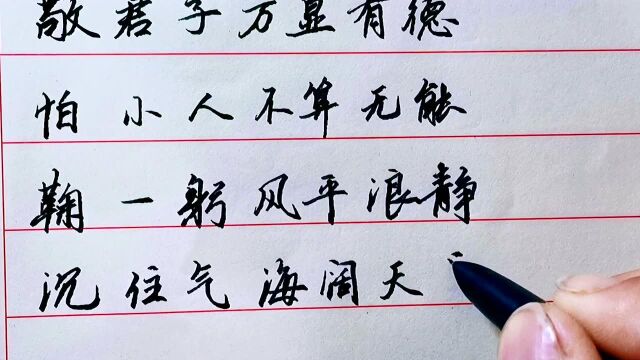 敬君子方显有德
怕小人不算无能
鞠一躬风平浪静
沉住气海阔天